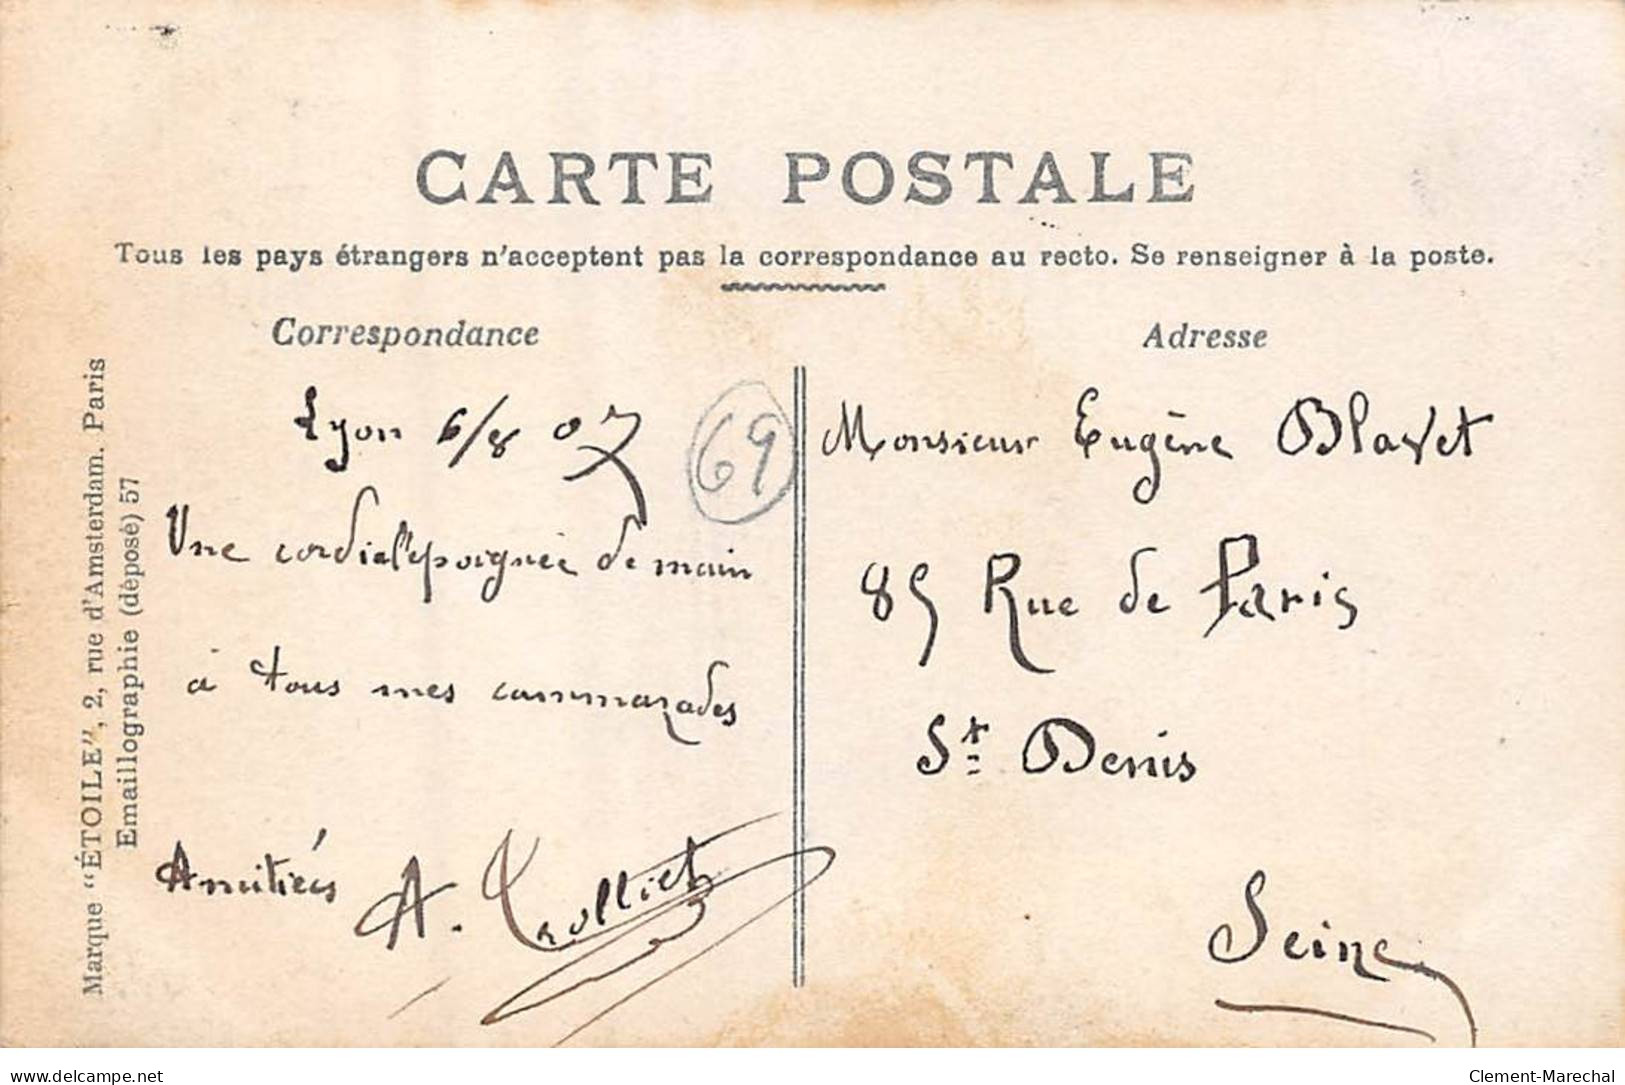 CARTE POSTALE
Tous les pays étrangers n'acceptent pas la correspondance au recto. Se renseigner à la poste.
Correspondance
Lyon 6/8 07
69
Une cordial'epoignée de main
à tous mes cammarades
Amitiés A. Trolliet
Adresse
Monsieur Eugène Blavet
85 Rue de Paris
St Denis
Seine
Marque "ÉTOILE", 2, rue d'Amsterdam. Paris
Emaillographie (déposé) 57
www.delcampe.net
Clement-Marechal